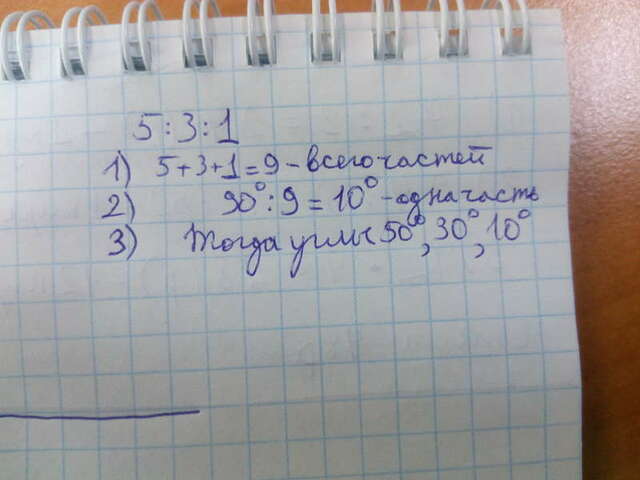 5 : 3 : 1
1) 5 + 3 + 1 = 9 - всего частей
2) 90° : 9 = 10° - одна часть
3) Тогда углы 50°, 30°, 10°